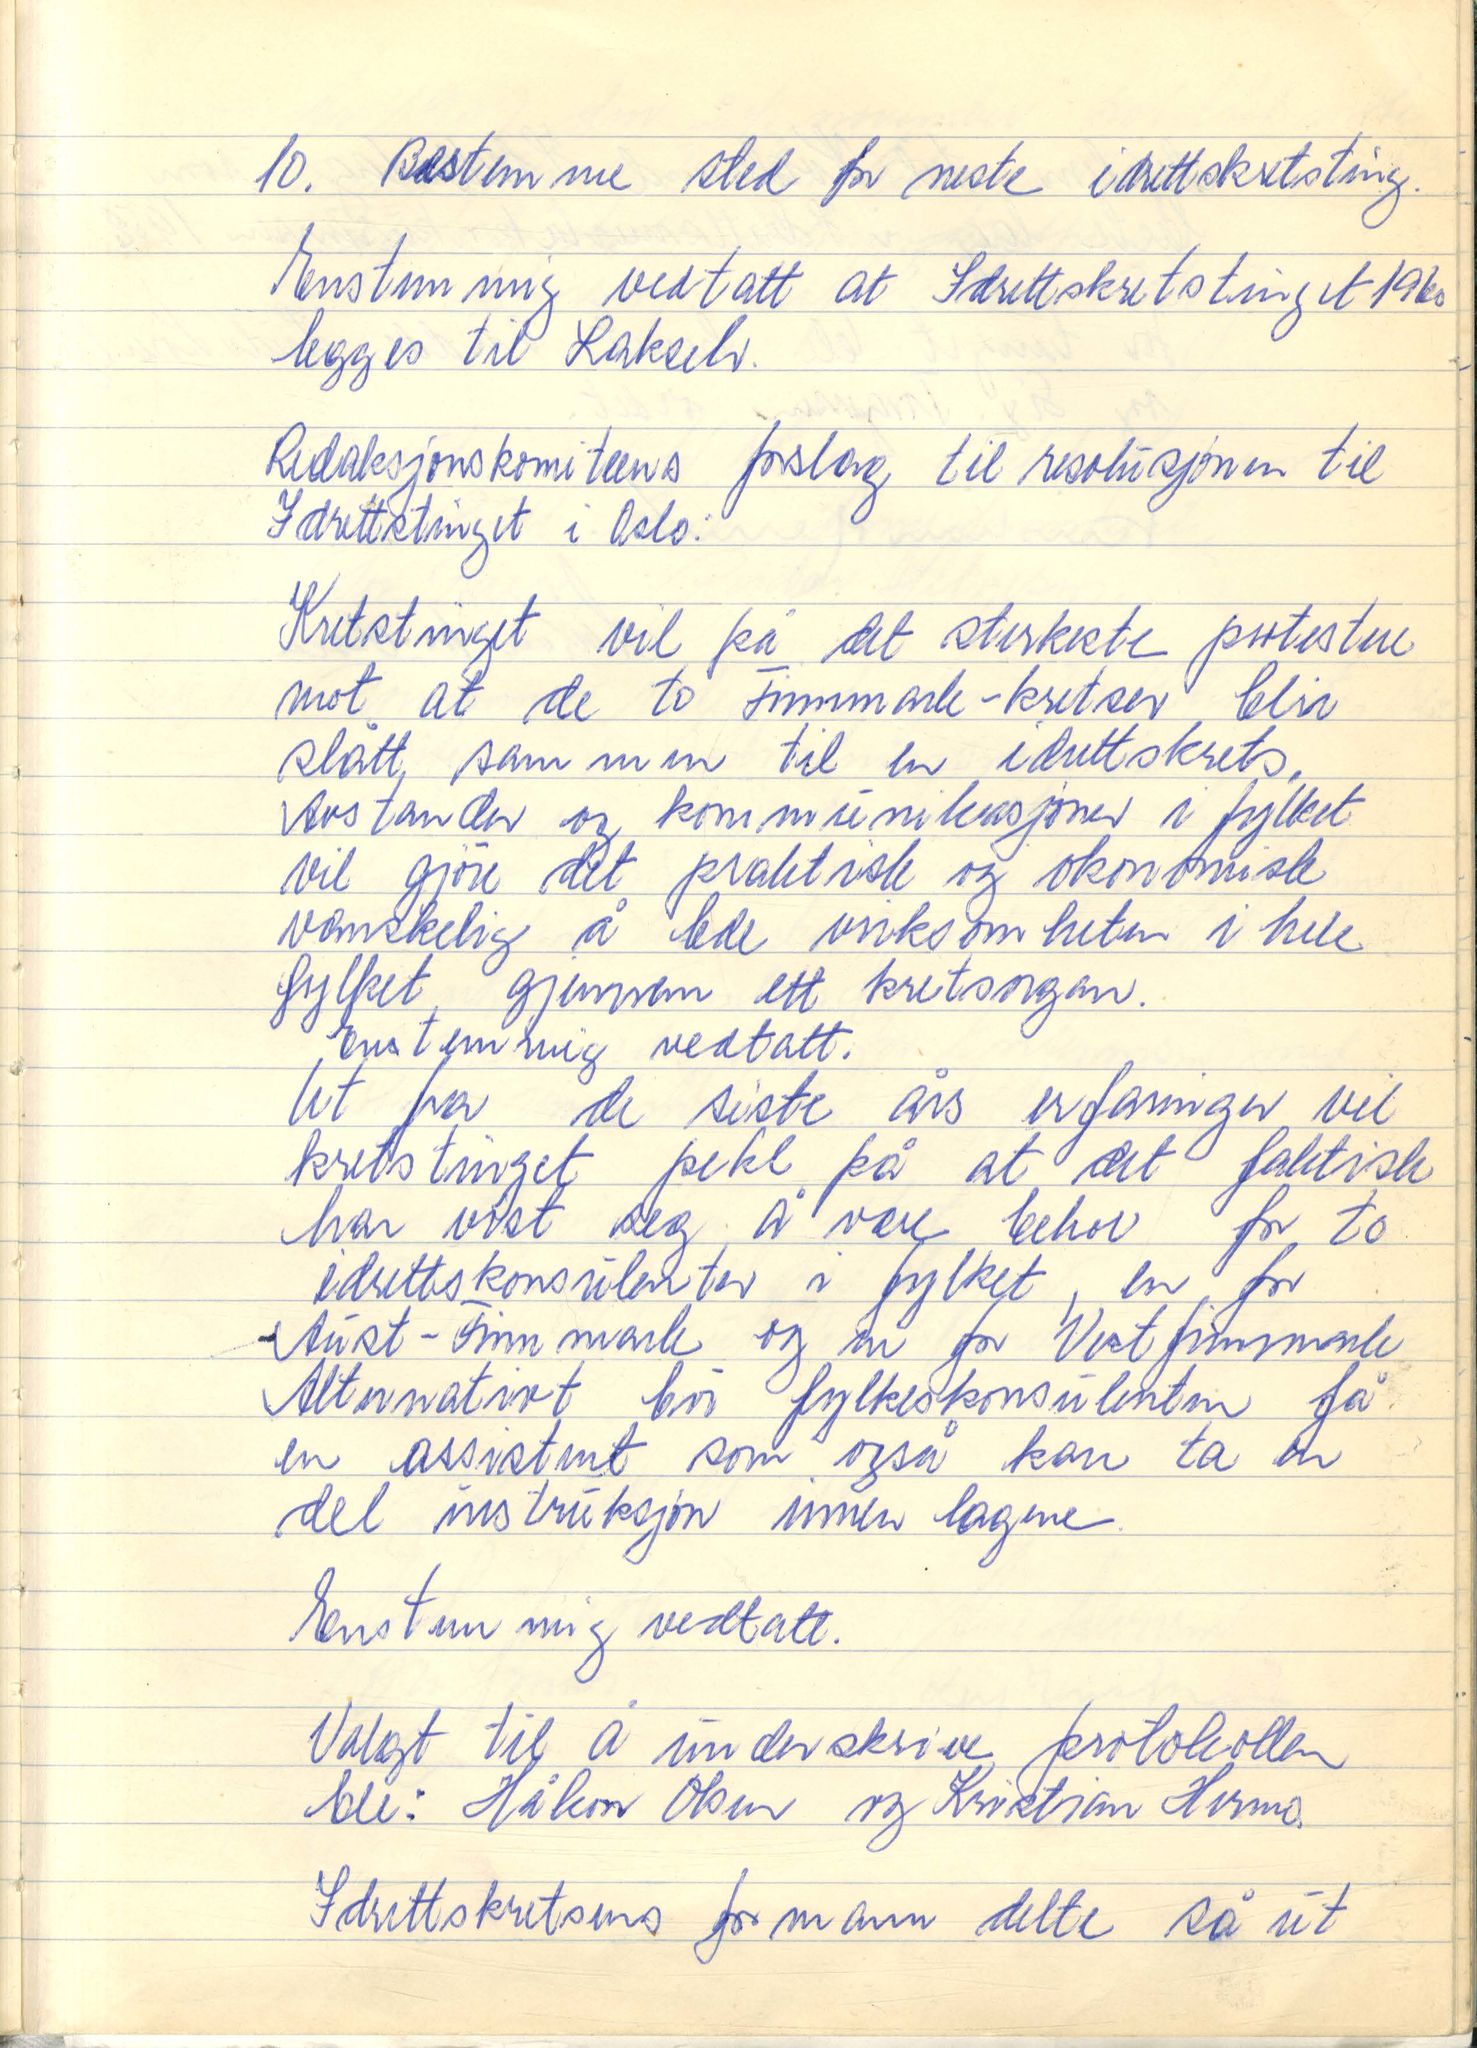 10. Bestemme sted for neste idrettskretsting.
Enstemmig vedtatt at Idrettskretstinget 1960
legges til Lakselv.
Redaksjonskomiteens forslag til resolusjonen til
Idrettstinget i Oslo:
Kretstinget vil på det sterkeste protestere
mot at de to Finnmark-kretser blir
slått sammen til en idrettskrets.
Avstander og kommunikasjoner i fylket
vil gjöre det praktisk og økonomisk
vanskelig å lede virksomheten i hele
fylket gjennem ett kretsorgan.
Enstemmig vedtatt.
Ut fra de siste års erfaringer vil
kretstinget peke på at det faktisk
har vist seg å være behov for to
idrettskonsulenter i fylket, en for
Aust-Finnmark og en for Vestfinnmark
Alternativt bör fylkeskonsulenten få
en assistent som også kan ta en
del instruksjon innen lagene.
Enstemmig vedtatt.
Valgt til å underskrive protokollen
ble: Håkon Olsen og Kristian
Idrettskretsens formann delte så ut